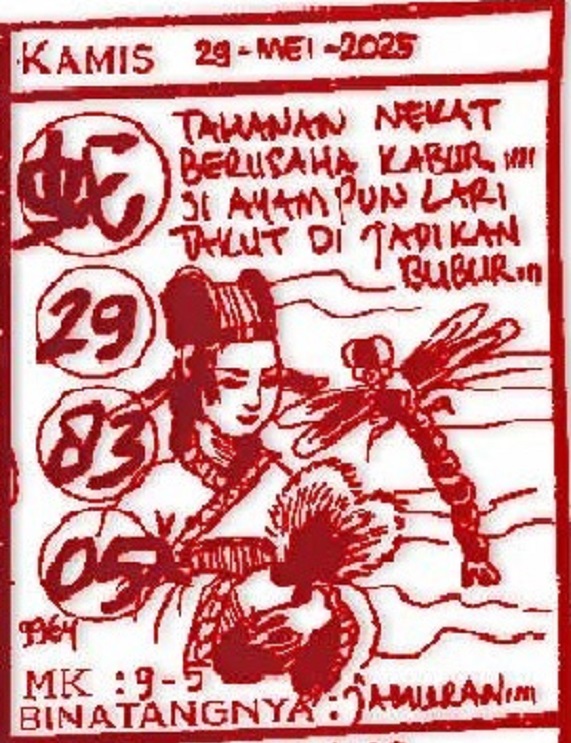 KAMIS 29-MEI-2025
TAHANAN NEKAT
BERUSAHA KABUR....
SI AYAM PUN LARI
TAKUT DI JADIKAN
BUBUR...
29
83
05
9964
MK : 9-5
BINATANGNYA : JAMURAN...